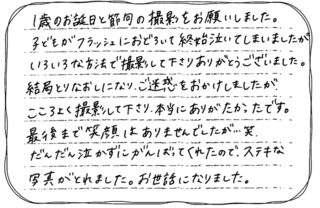 1歳のお誕日と節句の撮影をお願いしました。
子どもがフラッシュにおどろいて終始泣いてしまいましたが
いろいろな方法で撮影して下さりありがとうございました。
結局とりなおしになり、ご迷惑をおかけしましたが、
こころよく撮影して下さり、本当にありがたかったです。
最後まで笑顔はありませんでしたが…笑
だんだん泣かずにがんばってくれたので、ステキな
写真がとれました。お世話になりました。